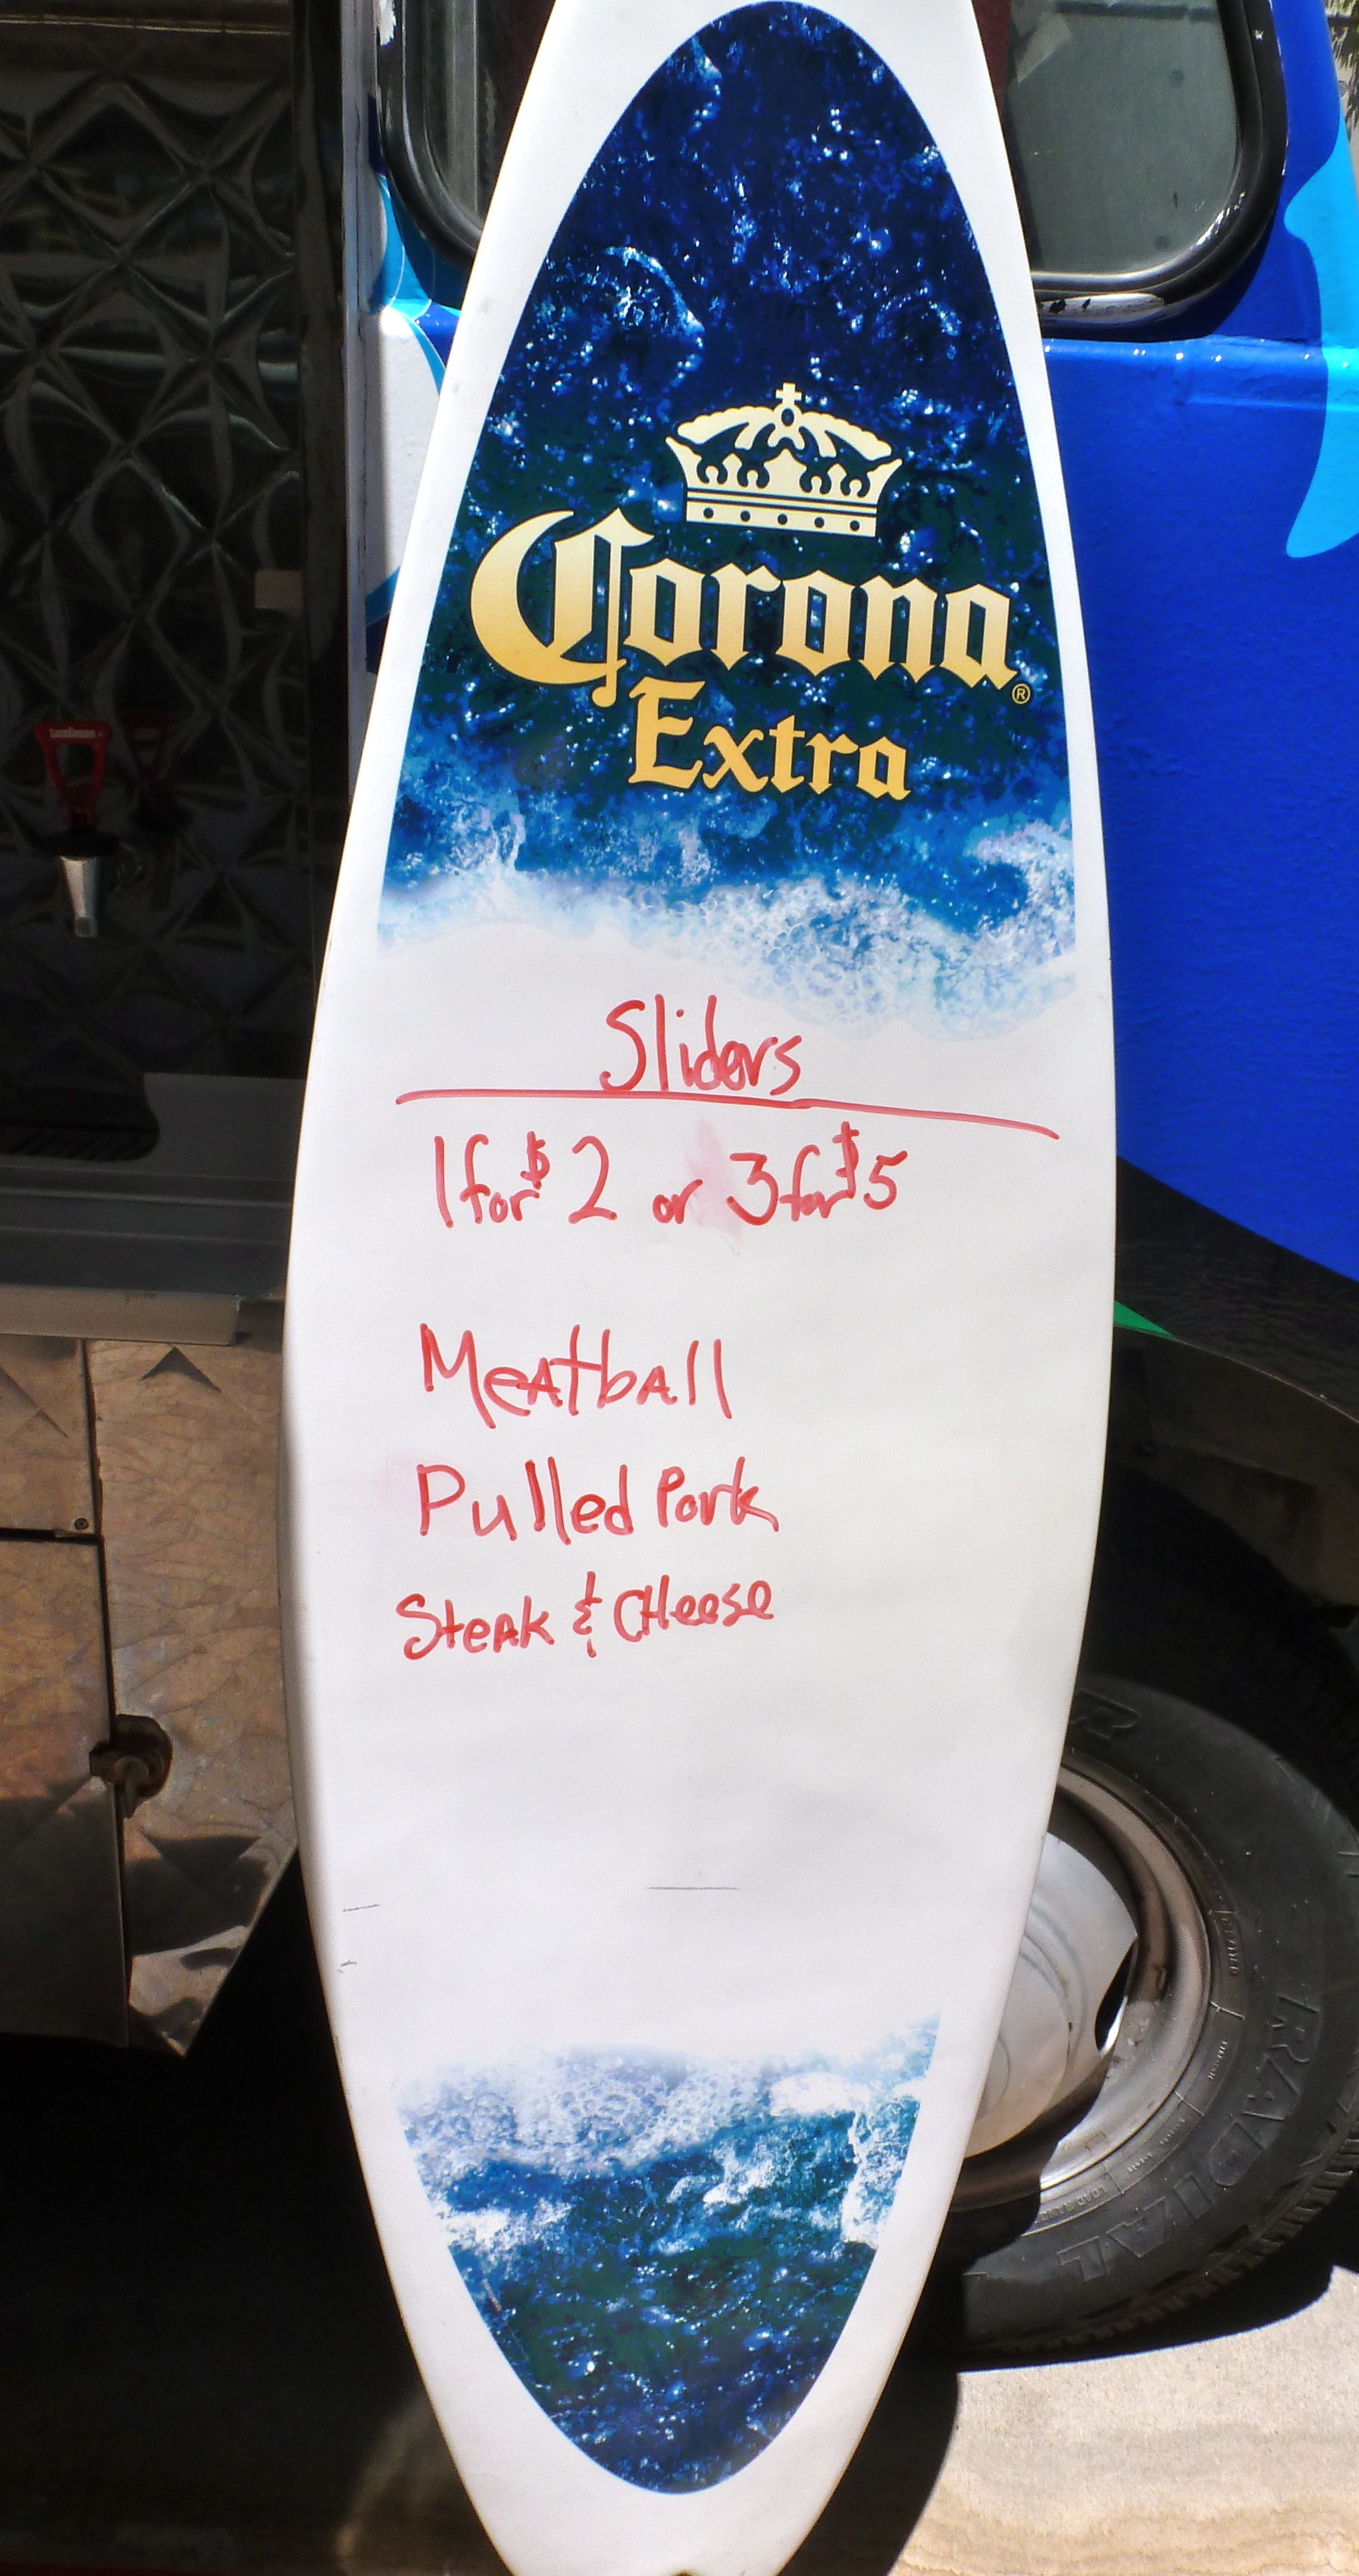 Corona
Extra
®
Sliders
1 for $2 or 3 for $5
Meatball
Pulled Pork
Steak & Cheese
tomlinson
RADIAL